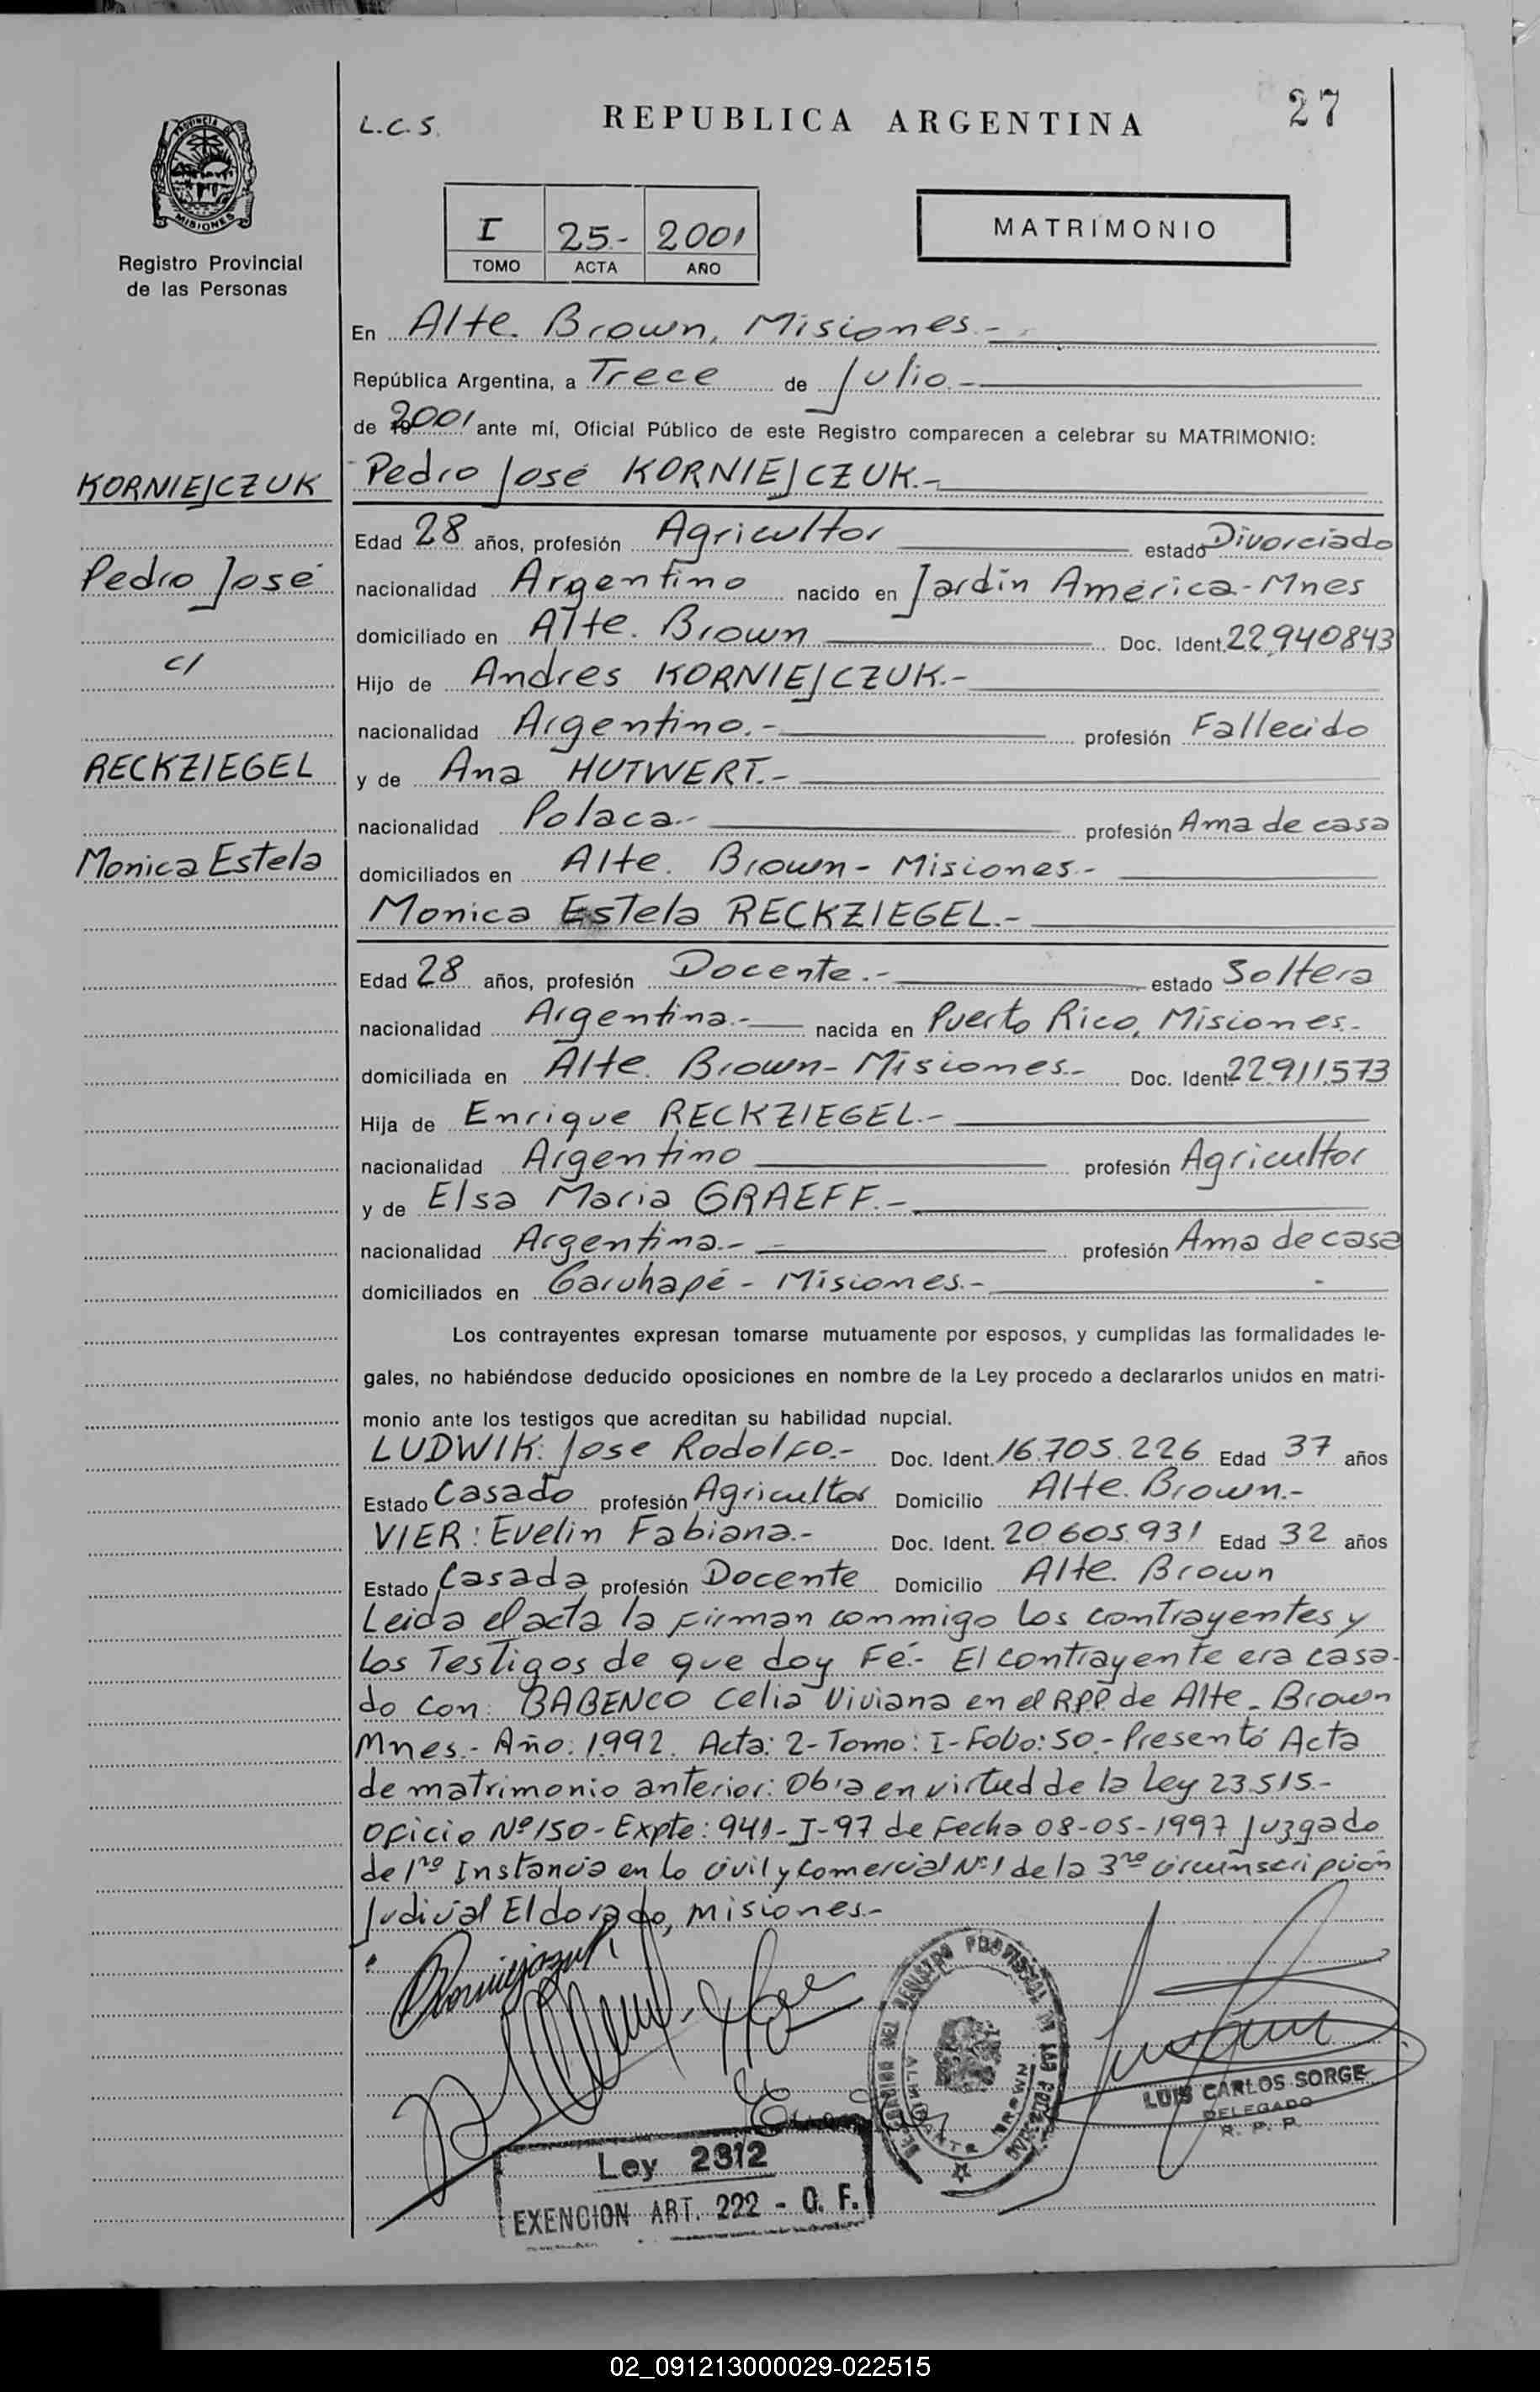 PROVINCIA DE
MISIONES
Registro Provincial
de las Personas
KORNIEJCZUK
Pedro José
c/
RECKZIEGEL
Monica Estela
L.C.S.
REPUBLICA ARGENTINA
27
I 25.- 2001
TOMO ACTA AÑO
MATRIMONIO
En Alte. Brown, Misiones.-
República Argentina, a Trece de Julio.-
de 2001 ante mí, Oficial Público de este Registro comparecen a celebrar su MATRIMONIO:
Pedro José KORNIEJCZUK.-
Edad 28 años, profesión Agricultor estado Divorciado
nacionalidad Argentino nacido en Jardín América-Mnes
domiciliado en Alte. Brown Doc. Ident. 22.940843
Hijo de Andres KORNIEJCZUK.-
nacionalidad Argentino.- profesión Fallecido
y de Ana HUTWERT.-
nacionalidad Polaca.- profesión Ama de casa
domiciliados en Alte. Brown - Misiones.-
Monica Estela RECKZIEGEL.-
Edad 28 años, profesión Docente.- estado Soltera
nacionalidad Argentina.- nacida en Puerto Rico, Misiones.-
domiciliada en Alte. Brown - Misiones.- Doc. Ident. 22.911.573
Hija de Enrique RECKZIEGEL.-
nacionalidad Argentino profesión Agricultor
y de Elsa Maria GRAEFF.-
nacionalidad Argentina.- profesión Ama de casa
domiciliados en Garuhapé - Misiones.-
Los contrayentes expresan tomarse mutuamente por esposos, y cumplidas las formalidades le-
gales, no habiéndose deducido oposiciones en nombre de la Ley procedo a declararlos unidos en matri-
monio ante los testigos que acreditan su habilidad nupcial.
LUDWIK: Jose Rodolfo.- Doc. Ident. 16.705.226 Edad 37 años
Estado Casado profesión Agricultor Domicilio Alte. Brown.-
VIER: Evelin Fabiana.- Doc. Ident. 20.605.931 Edad 32 años
Estado Casada profesión Docente Domicilio Alte. Brown
Leida el acta la firman conmigo los contrayentes y
los Testigos de que doy Fé.- El contrayente era casa-
do con: BABENCO Celia Viviana en el RPP. de Alte. Brown
Mnes.- Año: 1992. Acta: 2- Tomo: I- Folio: 50.- Presentó Acta
de matrimonio anterior: Obra en virtud de la Ley 23.515.-
Oficio Nº 150 - Expte: 941-I-97 de Fecha 08-05-1997 Juzgado
de 1ra Instancia en lo civil y Comercial Nº1 de la 3ra circunscripción
Judicial Eldorado, Misiones.-
REGISTRO PROVINCIAL DE LAS PERSONAS
ALMIRANTE BROWN
LUIS CARLOS SORGE
DELEGADO
R. P. P.
Ley 2312
EXENCION ART. 222 - O. F.
02_091213000029-022515